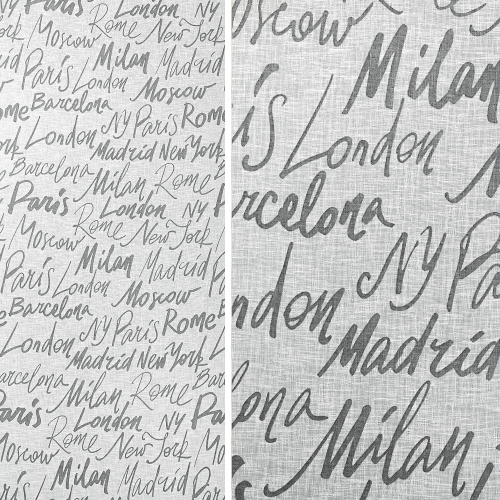 London NY
Moscow Rome New York
Milan Madrid
Paris London Moscow
Barcelona NY Paris Rome
London Madrid New York
Barcelona Milan Rome
Paris London NY
Moscow Rome New York
Milan Madrid
Paris London Moscow
Barcelona NY Paris Rome
London Madrid New York
Barcelona Milan Rome
Paris London NY Pa
Moscow Rome New York Mo
Milan Madrid
Paris
oscow
Milan
ís London
rcelona
NY Pa
ndon
Madrid
ona
Milan